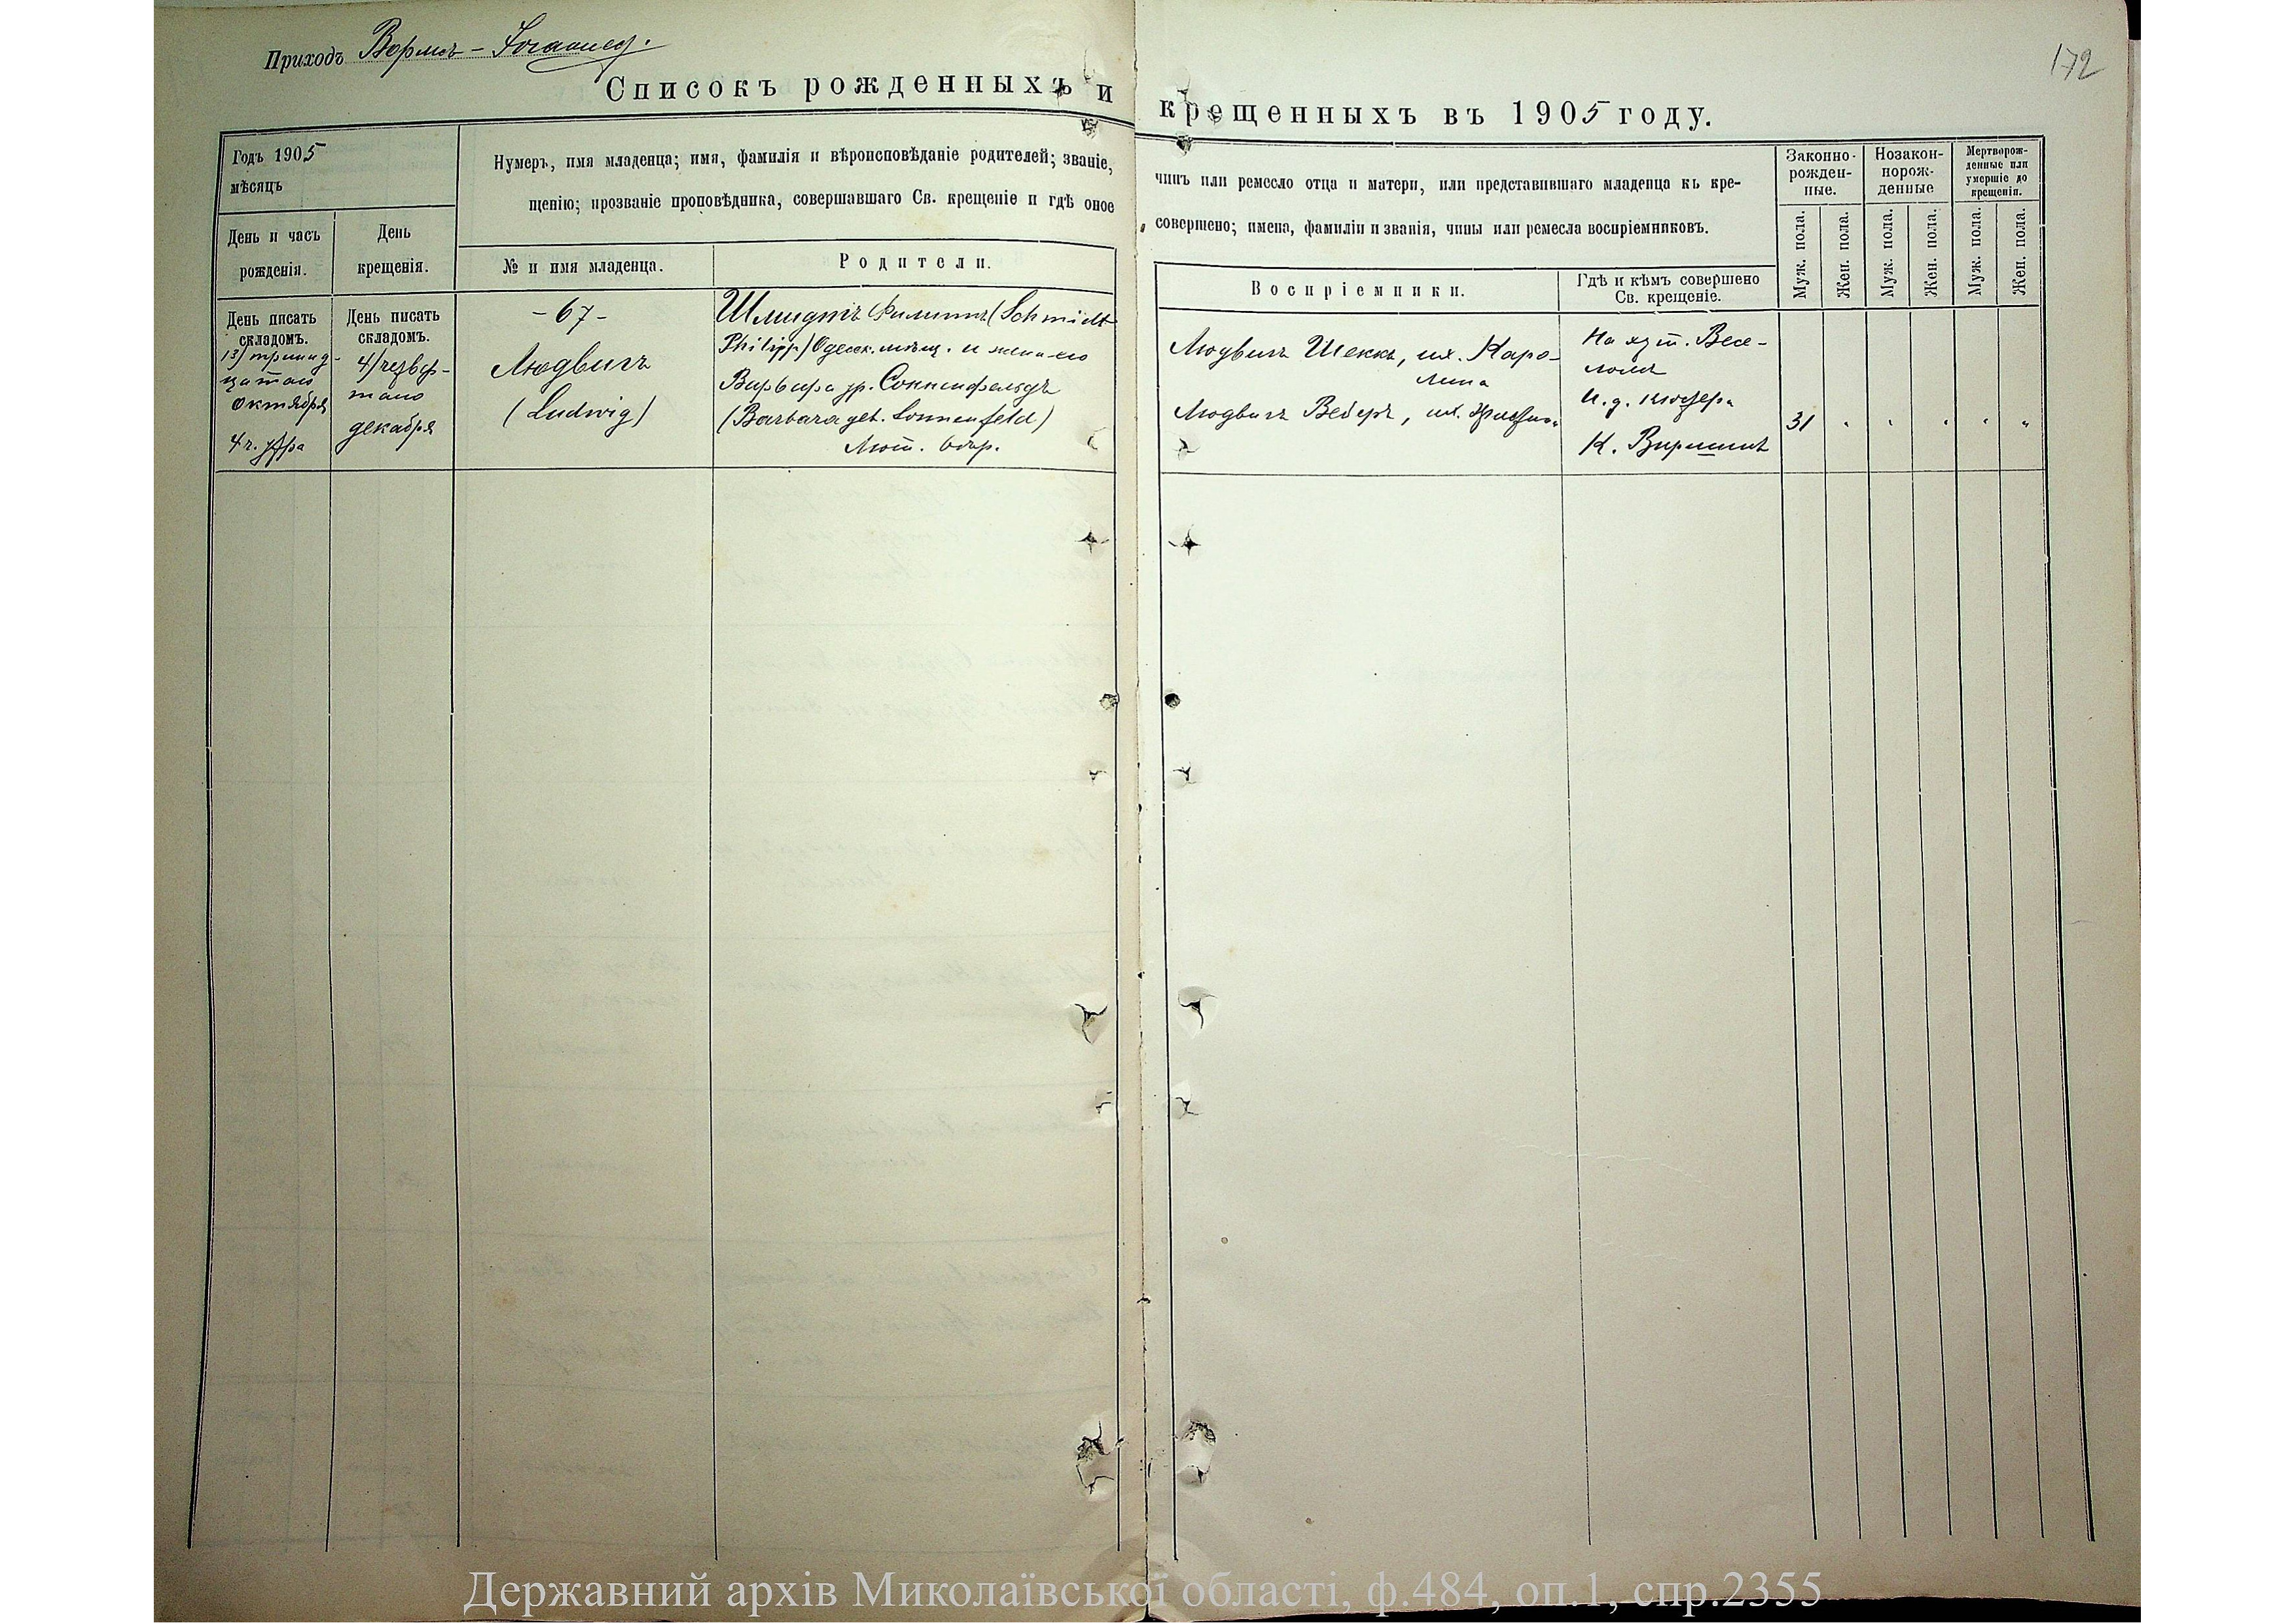 Приходъ Вормсъ-Іоганнесъ.
172
Списокъ рожденныхъ и крещенныхъ въ 1905 году.
Годъ 1905
мѣсяцъ
День и часъ
рожденія.
День
крещенія.
Нумеръ, имя младенца; имя, фамилія и вѣроисповѣданіе родителей; званіе,
чинъ или ремесло отца и матери, или представившаго младенца къ кре-
щенію; прозваніе проповѣдника, совершавшаго Св. крещеніе и гдѣ оное
совершено; имена, фамиліи и званія, чины или ремесла воспріемниковъ.
№ и имя младенца.
Родители.
Воспріемники.
Гдѣ и кѣмъ совершено
Св. крещеніе.
Законно-
рожден-
ные.
Незакон-
норож-
денные
Мертворож-
денные или
умершіе до
крещенія.
Муж. пола.
Жен. пола.
Муж. пола.
Жен. пола.
Муж. пола.
Жен. пола.
День писать
складомъ.
13/тринад-
цатаго
Октября
4 ч. утра
День писать
складомъ.
4/четвер-
таго
декабря
-67-
Людвигъ
(Ludwig)
Шмидтъ Филиппъ (Schmidt
Philipp) Одесск. мѣщ. и жена его
Варвара ур. Зонненфельдъ
(Barbara geb. Sonnenfeld)
Лют. обр.
Людвигъ Шеккъ, их. Каро-
лина
Людвигъ Веберъ, их.
На хут. Весе-
ломъ
И. д. кистера
К.
31 " " " " "
Державний архів Миколаївської області, ф.484, оп.1, спр.2355